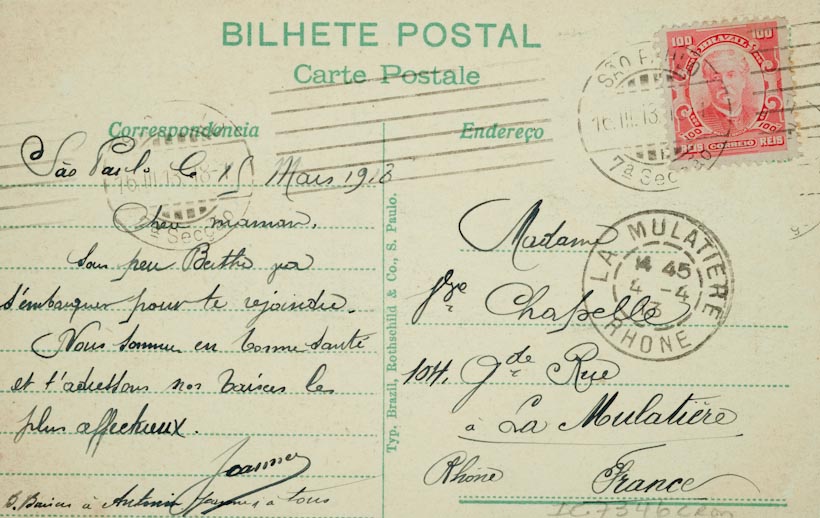 BILHETE POSTAL
Carte Postale
Correspondencia
São Paulo le 15 Mars 1913
Chère maman,
Sous peu Berthe va
s'embarquer pour te rejoindre.
Nous sommes en bonne santé
et t'adressons nos baisers les
plus affectueux.
Joannes
Baisers à Antonin Joannes à tous
Typ. Brazil, Rothschild & Co., S. Paulo.
Endereço
Madame
Vve
Chapelle
104, Gde Rue
à La Mulatière
Rhône France
100 BRAZIL 100
100 100
REIS CORREIO REIS
SÃO PAULO
16.III.13
7ª Secção
SÃO PAULO
16.III.13
7ª Secção
LA MULATIÈRE
14 45
4 -4
13
RHONE